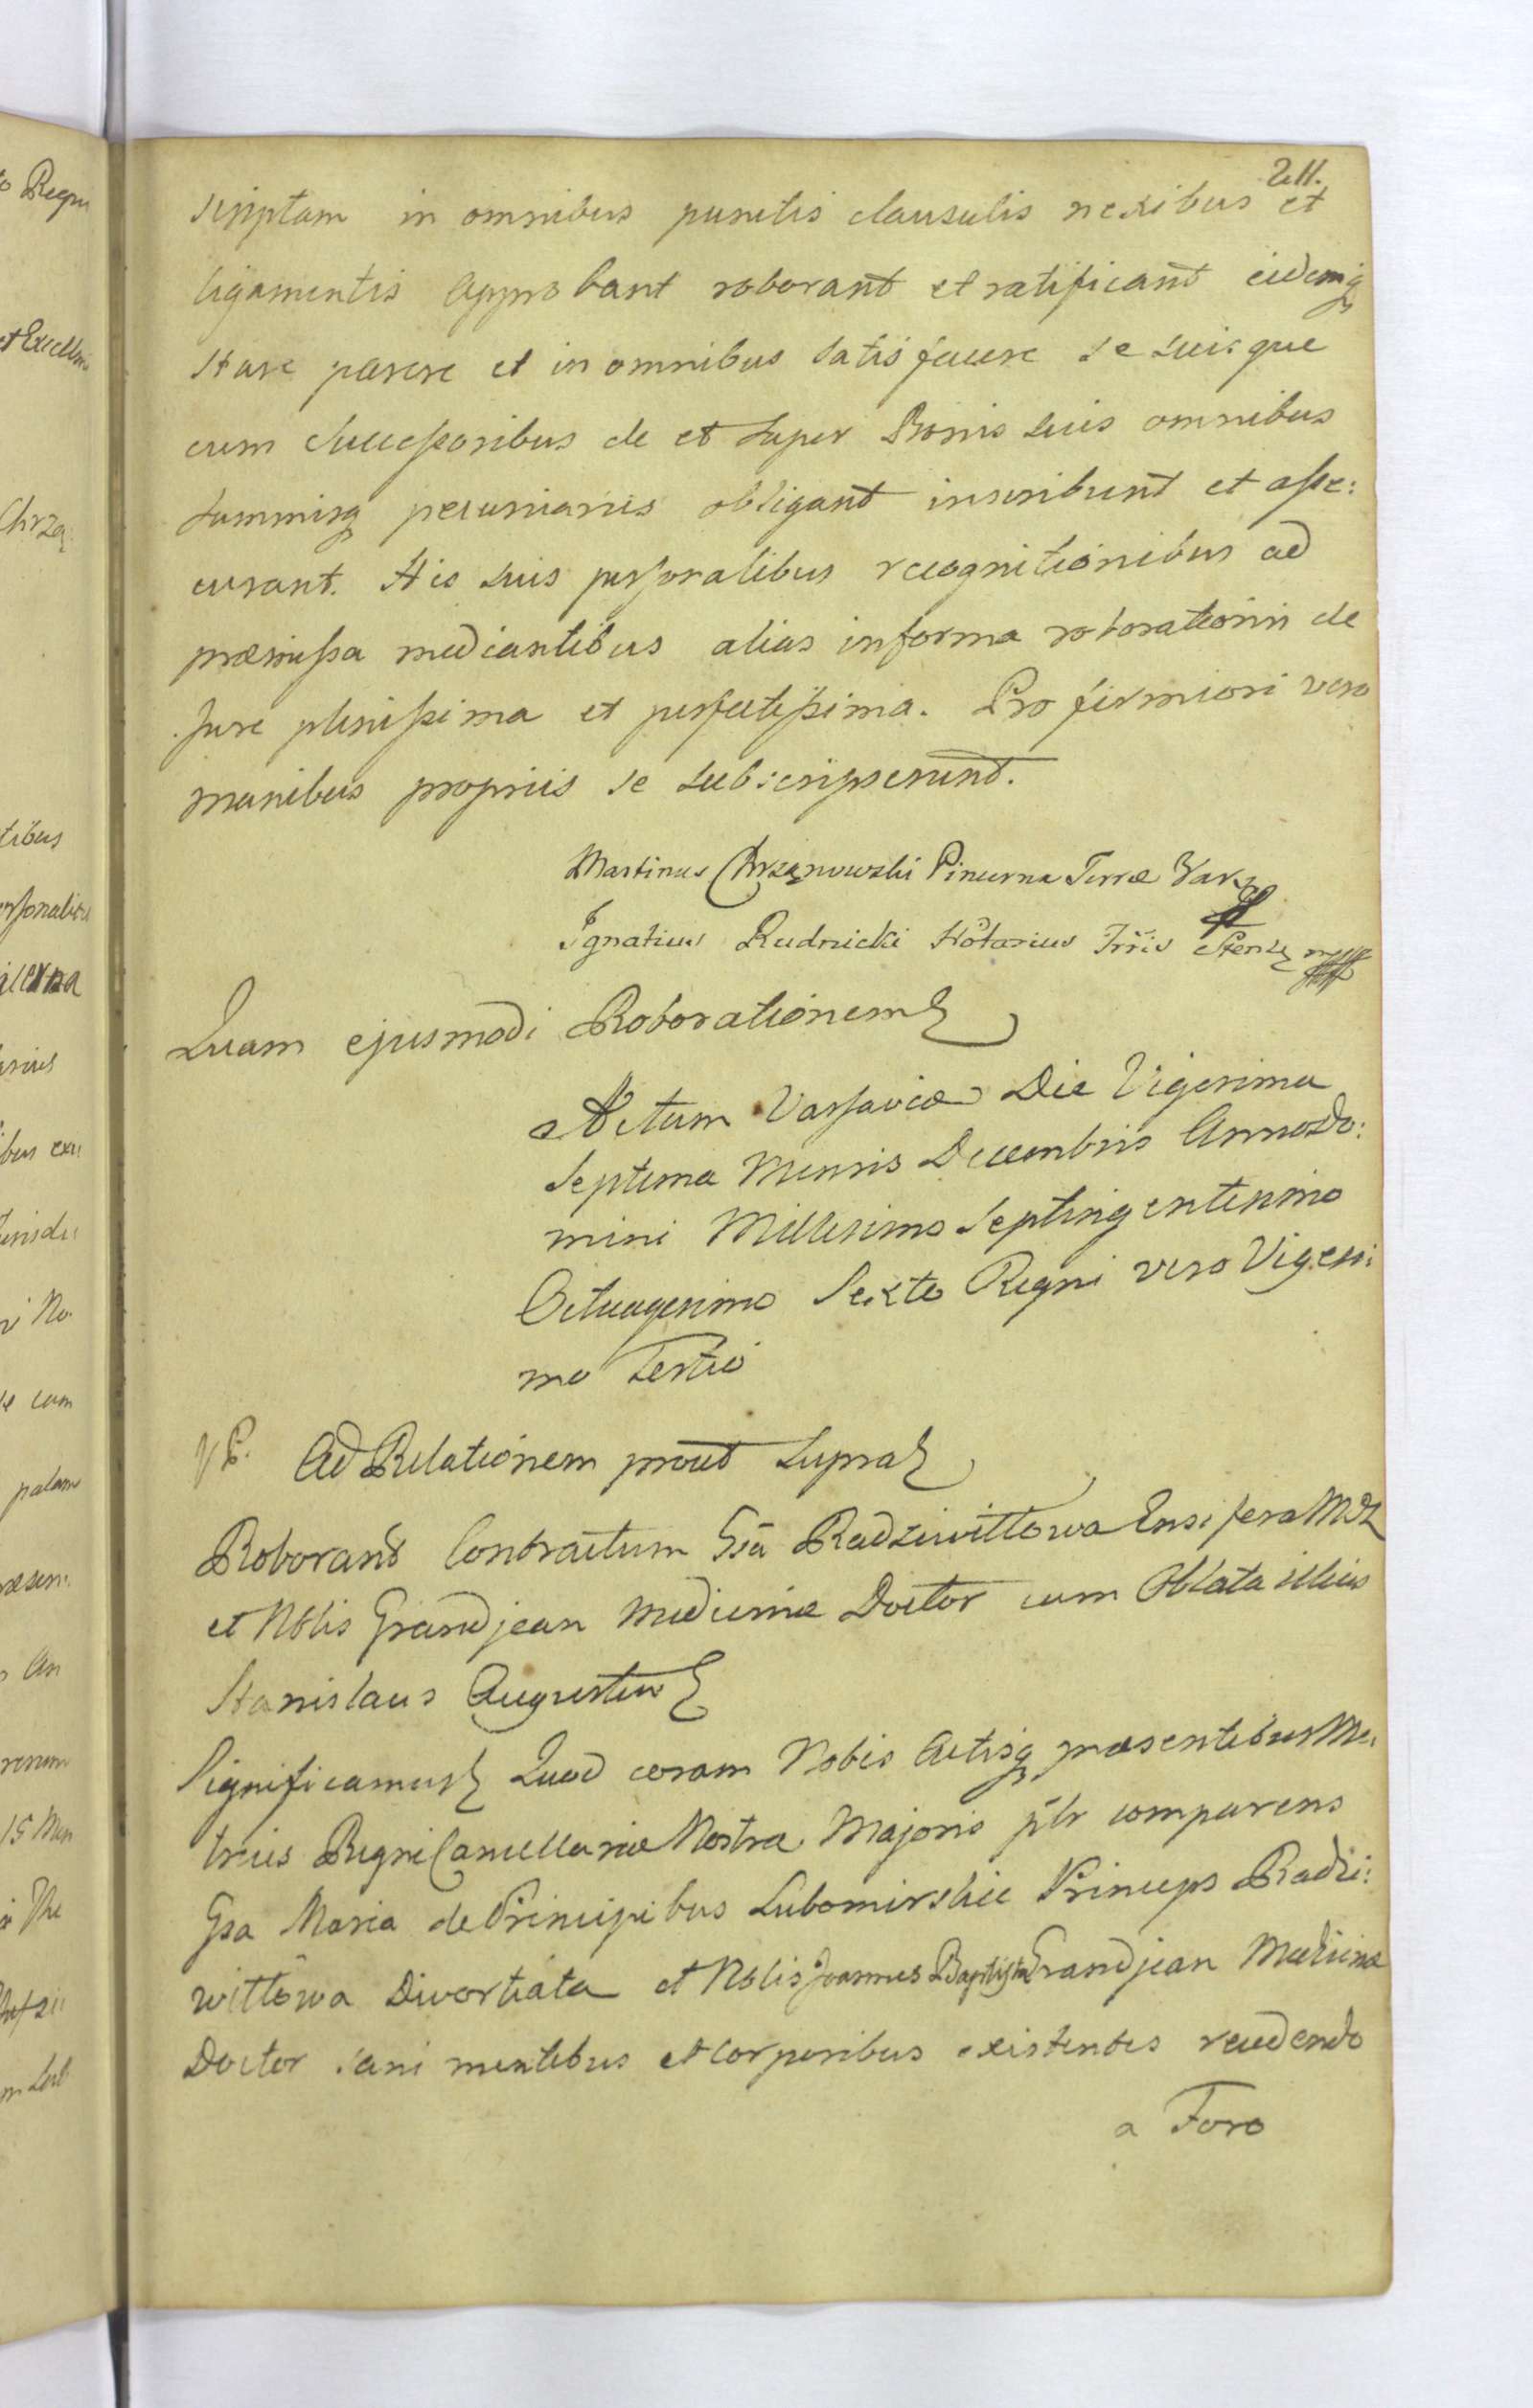 211.
scriptam in omnibus punctis clausulis nexibus et
ligamentis approbant roborant et ratificant eidemq
stare parere et in omnibus satisfacere se suisque
cum Successoribus de et super Bonis suis omnibus
summisq pecuniariis obligant inscribunt et asse:
curant. His suis personalibus recognitionibus ad
præmissa mediantibus alias in forma roborationis de
Jure plenissima et perfectissima. Pro firmiori vero
manibus propriis se subscripserunt.
Martinus Chrzanowski Pincerna Terræ Vars
Ignatius Rudnicki Notarius Trris Stenz
Quam ejusmodi Roborationem
Actum Varsaviæ Die Vigesima
Septima Mensis Decembris Anno Do:
mini Millesimo Septingentesimo
Octuagesimo Sexto Regni vero Vigesi:
mo Tertio
Ad Relationem prout supra
Roborant Contractum Gsa Radziwiłłowa Ensifera MDL
et Nblis Grandjean Medicinæ Doctor cum Oblata illius
Stanislaus Augustus
Significamus Quod coram Nobis Actisq præsentibus Me:
tricis Regni Cancellariæ Nostræ Majoris pslr comparens
Gsa Maria de Principibus Lubomirskie Princeps Radzi:
wiłłowa Divortiata et Nblis Joannes Baptista Grandjean Medicinæ
Doctor sani mentibus et corporibus existentes recedendo
a Foro